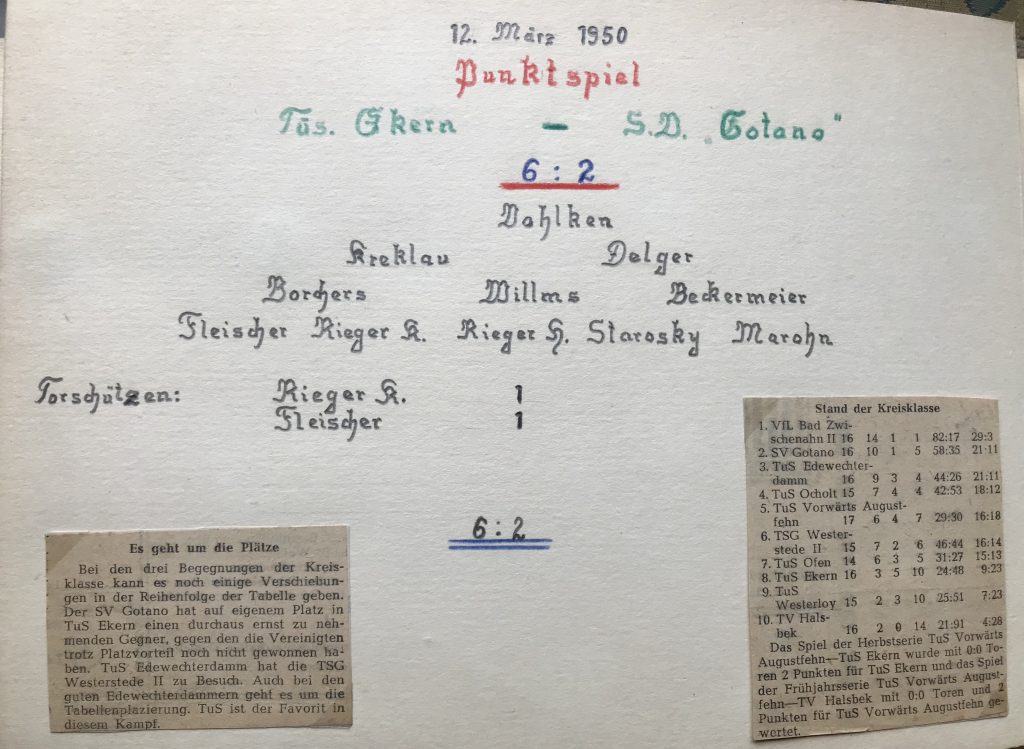 12. März 1950
Punktspiel
Tus. Ekern - S.D. „Gotano"
6 : 2
Dahlken
Kreklau Delger
Borchers Willms Beckermeier
Fleischer Rieger K. Rieger H. Starosky Marohn
Torschützen: Rieger K. 1
Fleischer 1
6 : 2
Es geht um die Plätze
Bei den drei Begegnungen der Kreis-
klasse kann es noch einige Verschiebun-
gen in der Reihenfolge der Tabelle geben.
Der SV Gotano hat auf eigenem Platz in
TuS Ekern einen durchaus ernst zu neh-
menden Gegner, gegen den die Vereinigten
trotz Platzvorteil noch nicht gewonnen ha-
ben. TuS Edewechterdamm hat die TSG
Westerstede II zu Besuch. Auch bei den
guten Edewechterdammern geht es um die
Tabellenplazierung. TuS ist der Favorit in
diesem Kampf.
Stand der Kreisklasse
1. VfL Bad Zwi-
schenahn II 16 14 1 1 82:17 29:3
2. SV Gotano 16 10 1 5 58:35 21:11
3. TuS Edewechter-
damm 16 9 3 4 44:26 21:11
4. TuS Ocholt 15 7 4 4 42:53 18:12
5. TuS Vorwärts August-
fehn 17 6 4 7 29:30 16:18
6. TSG Wester-
stede II 15 7 2 6 46:44 16:14
7. TuS Ofen 14 6 3 5 31:27 15:13
8. TuS Ekern 16 3 5 10 24:48 9:23
9. TuS
Westerloy 15 2 3 10 25:51 7:23
10. TV Hals-
bek 16 2 0 14 21:91 4:28
Das Spiel der Herbstserie TuS Vorwärts
Augustfehn—TuS Ekern wurde mit 0:0 To-
ren 2 Punkten für TuS Ekern und das Spiel
der Frühjahrsserie TuS Vorwärts August-
fehn—TV Halsbek mit 0:0 Toren und 2
Punkten für TuS Vorwärts Augustfehn ge-
wertet.